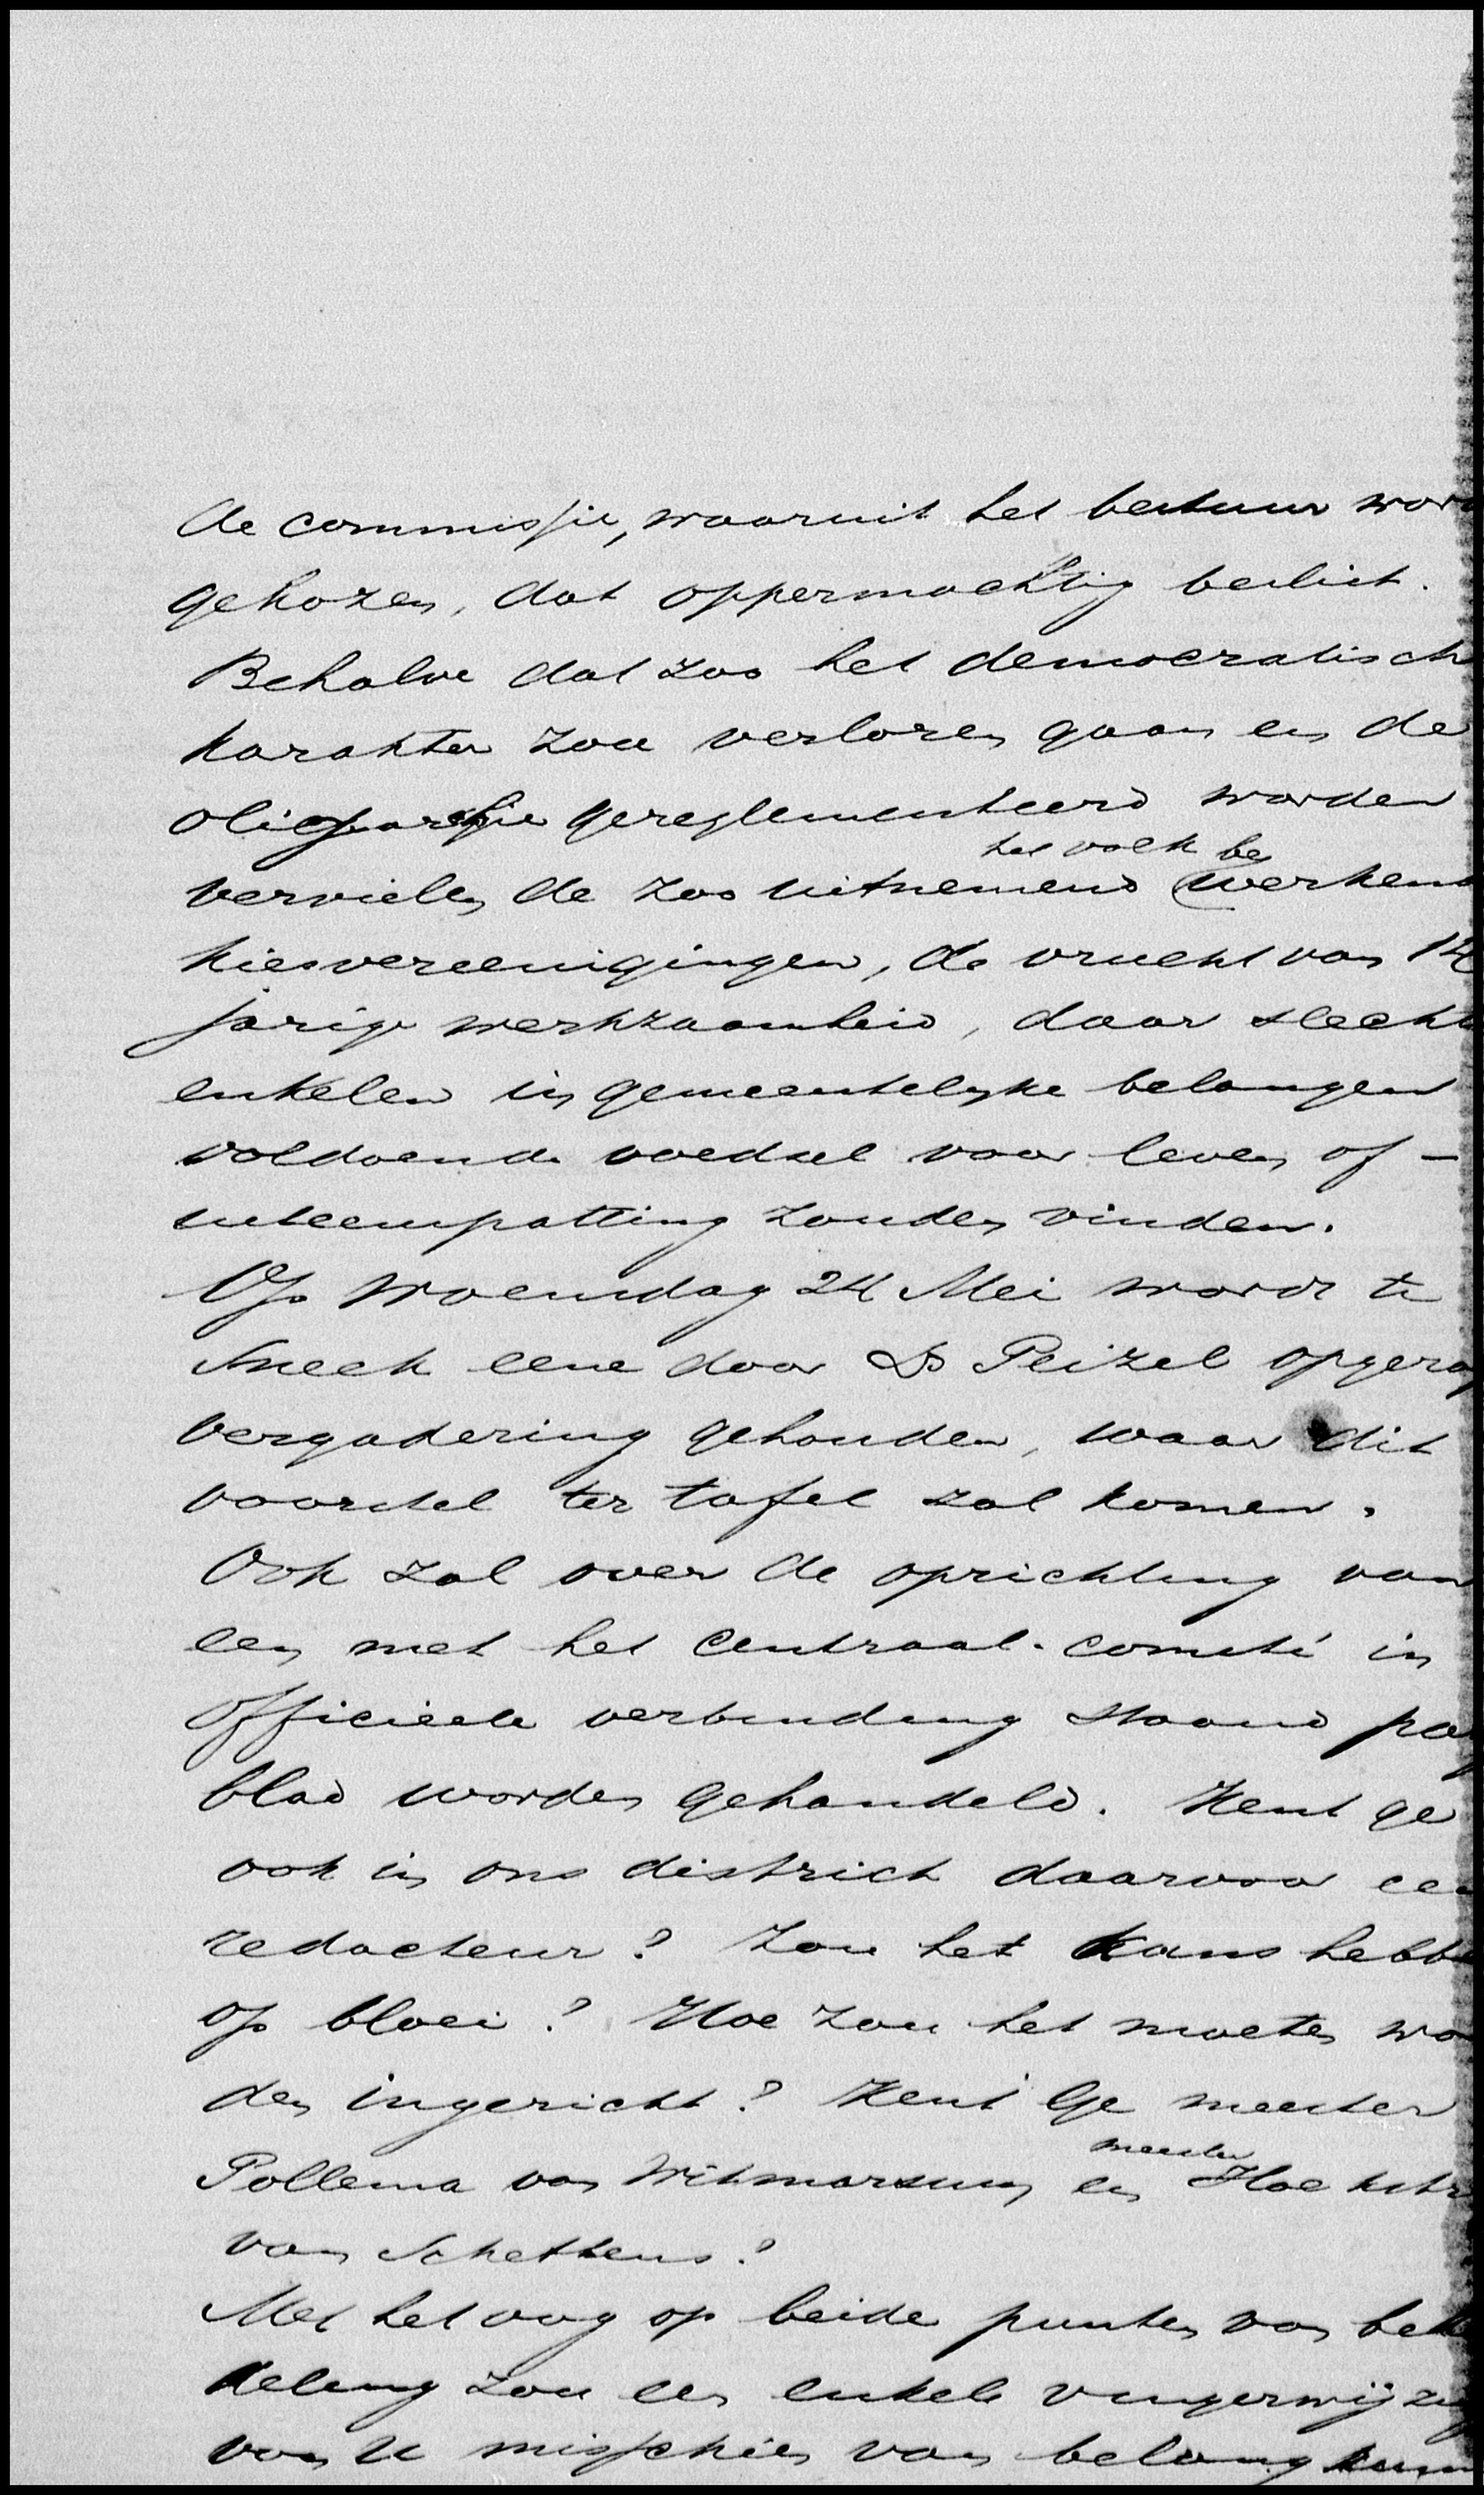 de commissie, waaruit het bestuur wor
gekozen, dat oppermachtig beslist.
Behalve dat zoo het democratisch
karakter zou verloren gaan en de
oligarchie gereglementeerd worden
het volk be
vervielen de zoo uitnemend werkend
kiesvereenigingen, de vrucht van 14
jarige werkzaamheid, daar slecht
enkelen in gemeentelyke belangen
voldoende voedsel voor leven of -
inteenspatting zouden vinden.
Op Woensdag 24 Mei wordt te
Sneek eene door Ds Peizel opgero
vergadering gehouden, waar dit
voorstel ter tafel zal komen.
Ook zal over de oprichting van
een met het Centraal-comité in
Officieele verbinding staand pa
blad worden gehandeld. Kent ge
ook in ons district daarvoor ee
redacteur? Zou het kans hebbe
op bloei? Hoe zou het moeten wo
den ingericht? Kent Ge meester
meester
Pollema van Witmarsum en Hoekstr
van Schettens?
Met het oog op beide punten van be
deling zou een enkele vingerwijzing
van U misschien van belang kunn